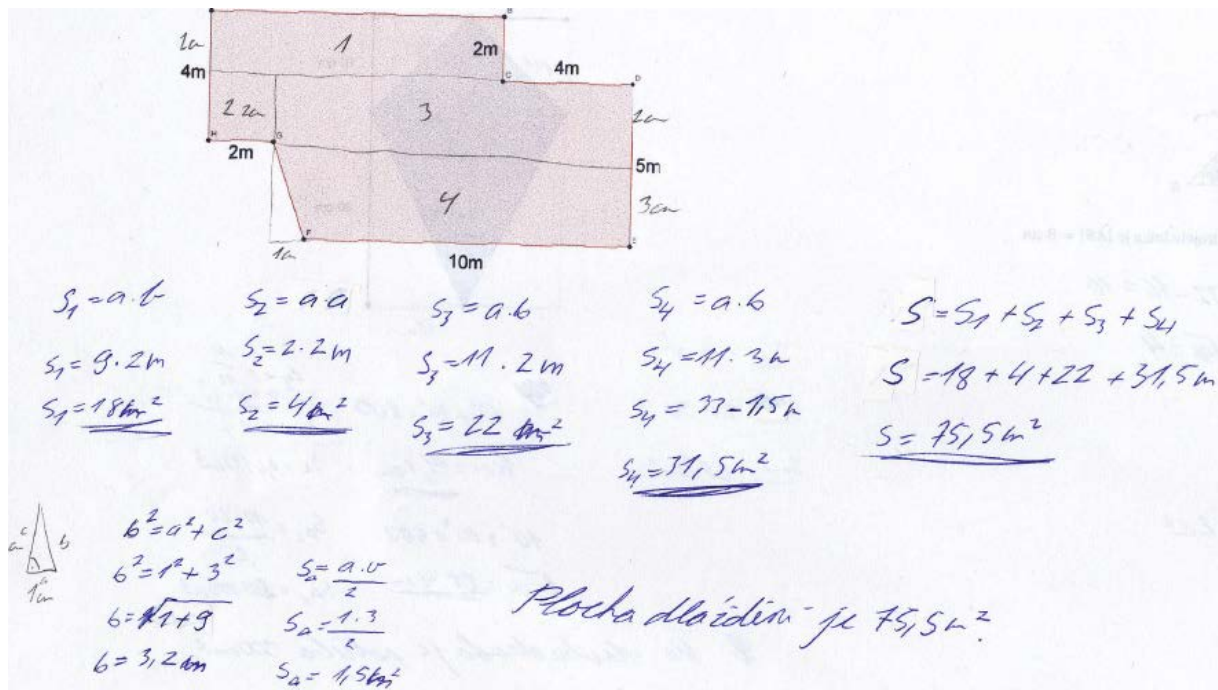 B
1
2m
2m
4m
4m
C
D
2 2m
3
2m
H
G
2m
5m
4
3m
F
E
1m
10m
S₁ = a.b
S₁ = 9.2m
S₁ = 18m²
S₂ = a.a
S₂ = 2.2m
S₂ = 4m²
S₃ = a.b
S₃ = 11.2m
S₃ = 22 m²
S₄ = a.b
S₄ = 11.3m
S₄ = 33-1,5m
S₄ = 31,5m²
S = S₁ + S₂ + S₃ + S₄
S = 18 + 4 + 22 + 31,5m
S = 75,5m²
c
a
b
1m
b² = a² + c²
b² = 1² + 3²
b = √1+9
b = 3,2m
Sₐ = a.v/2
Sₐ = 1.3/2
Sₐ = 1,5m²
Plocha dláždění je 75,5m².